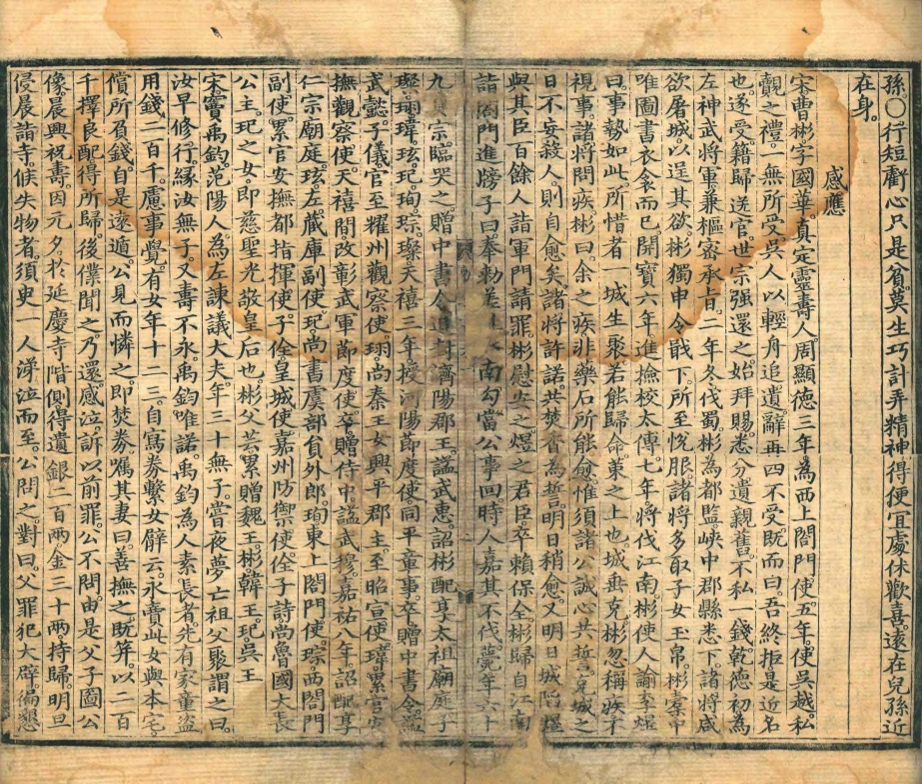 孫○行短虧心只是貧莫生巧計弄精神得便宜處休歡喜遠在兒孫近
在身。
感應
宋曹彬字國華真定靈壽人周顯德三年為西上閤門使五年使吳越私
覿之禮一無所受吳人以輕舟追遺辭再四不受既而曰吾終拒是近名
也遂受籍歸送官世宗强還之始拜賜悉分遺親舊不私一錢乾德初為
左神武將軍兼樞密承旨二年冬伐蜀彬為都監峽中郡縣悉下諸將咸
欲屠城以逞其欲彬獨申令戢下所至悅服諸將多取子女玉帛彬橐中
唯圖書衣衾而已開寶六年進撿校太傳七年將伐江南彬使人諭李煜
曰事勢如此所惜者一城生聚若能歸命策之上也城垂克彬忽稱疾不
視事諸將問疾彬曰余之疾非藥石所能愈惟須諸公誠心共誓克城之
日不妄殺人則自愈矣諸將許諾共焚香為誓明日稍愈又明日城陷煜
與其臣百餘人詣軍門請罪彬慰安之煜之君臣卒賴保全彬歸自江南
詣閤門進牓子曰奉勅差 南勾當公事回時人嘉其不伐薨年六十
九 宗臨哭之贈中書令追封濟陽郡王謚武惠詔彬配享太祖廟庭子
璨珝瑋玹玘珣琮璨天禧三年授河陽節度使同平章事卒贈中書令謚
武懿子儀官至耀州觀察使珝尚秦王女興平郡主至昭宣使瑋累官安
撫觀察使天禧間改彰武軍節度使卒贈侍中謚武穆嘉祐八年詔配享
仁宗廟庭玹左藏庫副使玘尚書虞部員外郎珣東上閤門使琮西閤門
副使累官安撫都指揮使子佺皇城使嘉州防禦使佺子詩尚魯國大長
公主玘之女即慈聖光敬皇后也彬父芸累贈魏王彬韓王玘吳王
宋竇禹鈞范陽人為左諫議大夫年三十無子嘗夜夢亡祖父聚謂之曰
汝早修行緣汝無子又壽不永禹鈞唯諾禹鈞為人素長者先有家童盜
用錢二百千慮事覺有女年十二三自寫券繫女臂云永賣此女與本宅
償所負錢自是遠遁公見而憐之即焚券囑其妻曰善撫之既笄以二百
千擇良配得所歸後僕聞之乃還感泣訴以前罪公不問由是父子圖公
像晨興祝壽因元夕於延慶寺階側得遺銀二百兩金三十兩持歸明旦
侵晨詣寺候失物者須臾一人涕泣而至公問之對曰父罪犯大辟徧懇